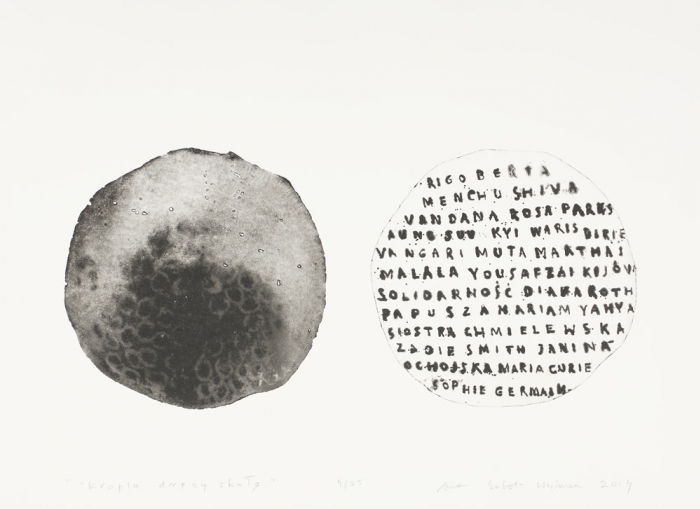 RIGOBERTA
MENCHU SHIVA
VANDANA ROSA PARKS
AUNG SUU KYI WARIS DIRIE
VANGARI MUTA MARTHAI
MALALA YOUSAFZAI KIJÓW
SOLIDARNOŚĆ DIANA ROTH
PAPUSZA MARIAM YAHYA
SIOSTRA CHMIELEWSKA
ZADIE SMITH JANINA
OCHOJSKA MARIA CURIE
SOPHIE GERMAIN
"Kropla drąży skałę" 2019